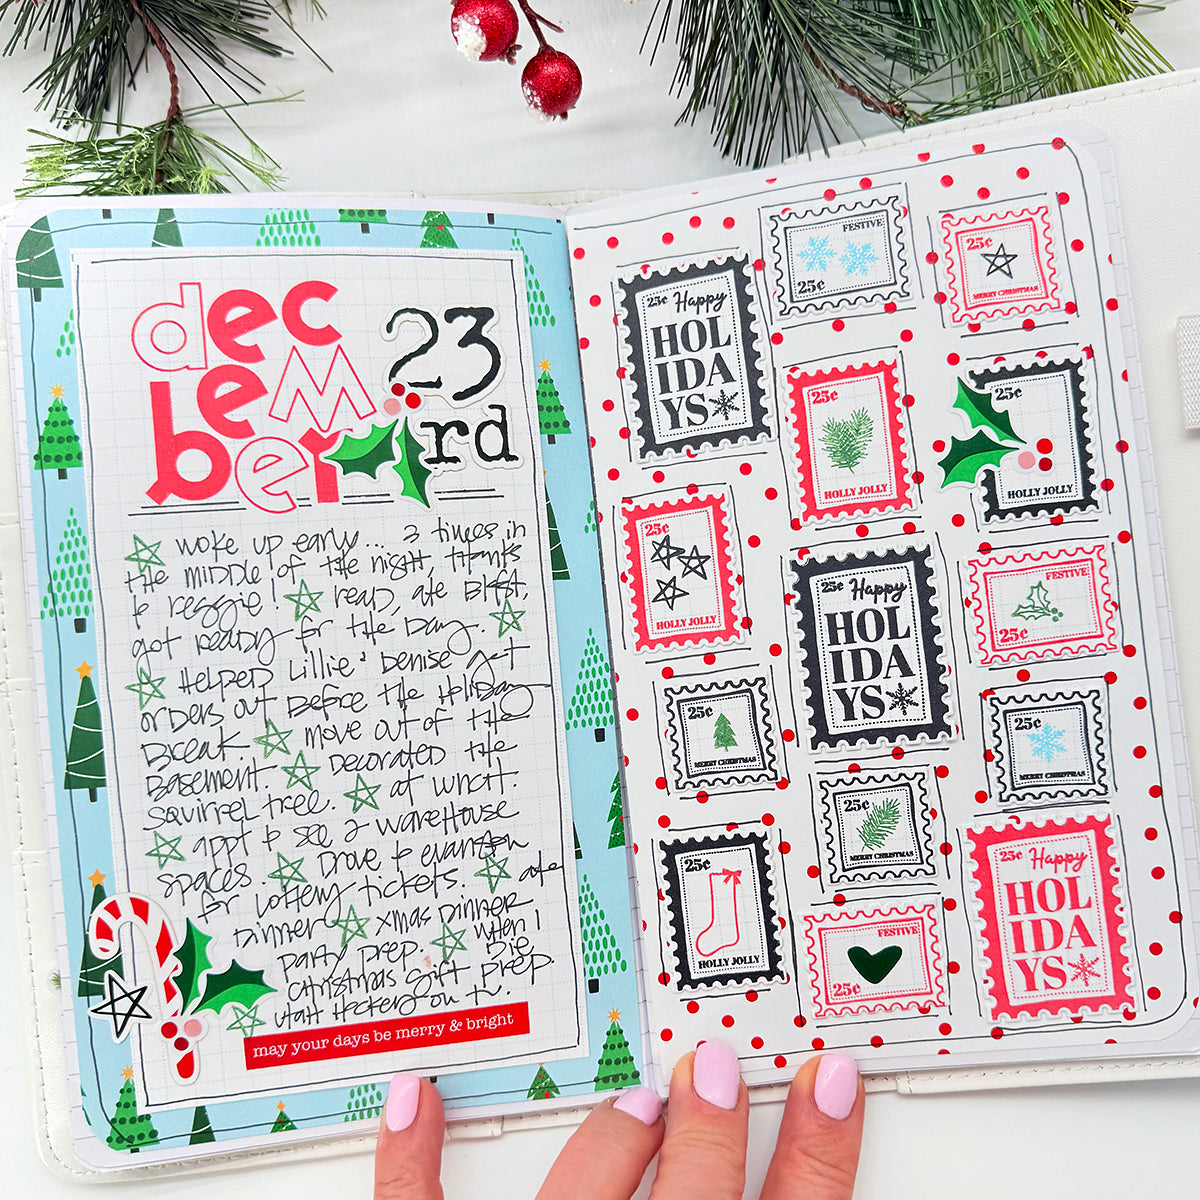 dec
em
ber
23
rd
woke up early... 3 times in
the middle of the night, thanks
to reggie! read, ate Bkfst,
got ready for the day.
Helped Lillie & Denise get
orders out before the Holiday
Break. move out of the
Basement. Decorated the
squirrel tree. ate lunch.
appt to see 2 warehouse
spaces. Drove to evanston
for lottery tickets. ate
Dinner. xmas Dinner
party prep. when I Die
Christmas gift prep.
utah Hockey on tv.
may your days be merry & bright
25¢ Happy
HOL
IDA
YS
FESTIVE
25¢
25¢
MERRY CHRISTMAS
25¢
HOLLY JOLLY
25¢
HOLLY JOLLY
25¢
HOLLY JOLLY
25¢ Happy
HOL
IDA
YS
FESTIVE
25¢
25¢
MERRY CHRISTMAS
25¢
MERRY CHRISTMAS
25¢
MERRY CHRISTMAS
25¢
HOLLY JOLLY
FESTIVE
25¢
25¢ Happy
HOL
IDA
YS